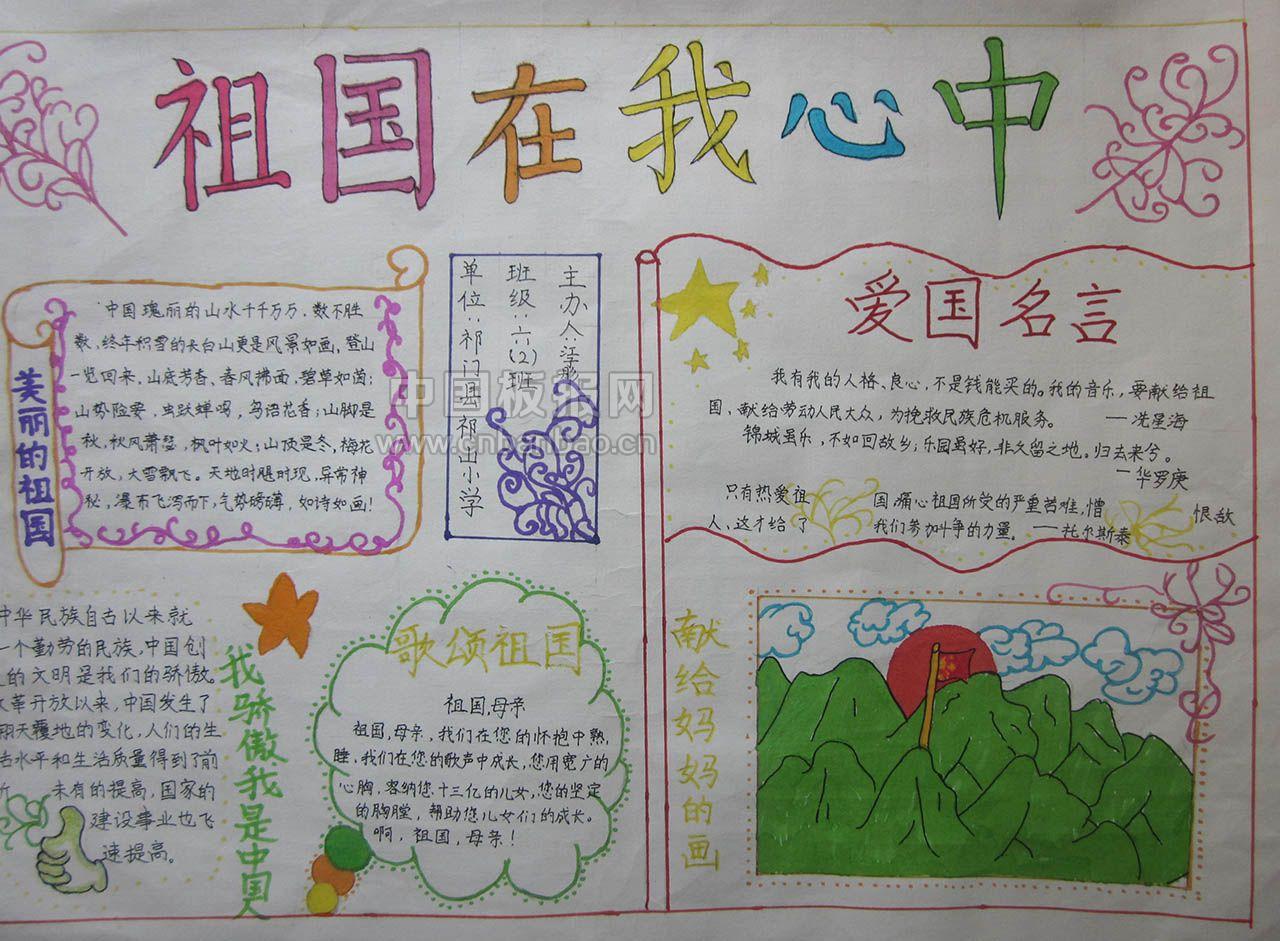 祖国在我心中
美丽的祖国
中国瑰丽的山水千千万万,数不胜
数,终年积雪的长白山更是风景如画,登山
一览回来,山底芳香、春风拂面,碧草如茵;
山势险要,虫跃蝉鸣,鸟语花香;山脚是
秋,秋风萧瑟,枫叶如火;山顶是冬,梅花
开放,大雪飘飞。天地时隐时现,异常神
秘,瀑布飞泻而下,气势磅礴,如诗如画!
主办人:江彤
班级:六(2)班
单位:祁门县祁山小学
爱国名言
我有我的人格、良心,不是钱能买的。我的音乐,要献给祖
国,献给劳动人民大众,为挽救民族危机服务。 —冼星海
锦城虽乐,不如回故乡;乐园虽好,非久留之地。归去来兮。
—华罗庚
只有热爱祖 国,痛心祖国所受的严重苦难,憎 恨敌
人,这才给了 我们参加斗争的力量。——托尔斯泰
中华民族自古以来就
一个勤劳的民族,中国创
的文明是我们的骄傲。
改革开放以来,中国发生了
翻天覆地的变化,人们的生
活水平和生活质量得到了前
所 未有的提高,国家的
建设事业也飞
速提高。
我骄傲我是中国人
歌颂祖国
祖国,母亲
祖国,母亲,我们在您的怀抱中熟
睡,我们在您的歌声中成长,您用宽广的
心胸,容纳您十三亿的儿女,您的坚定
的胸膛,帮助您儿女们的成长。
啊,祖国,母亲!
献给妈妈的画
中国板报网
www.cnbanbao.cn